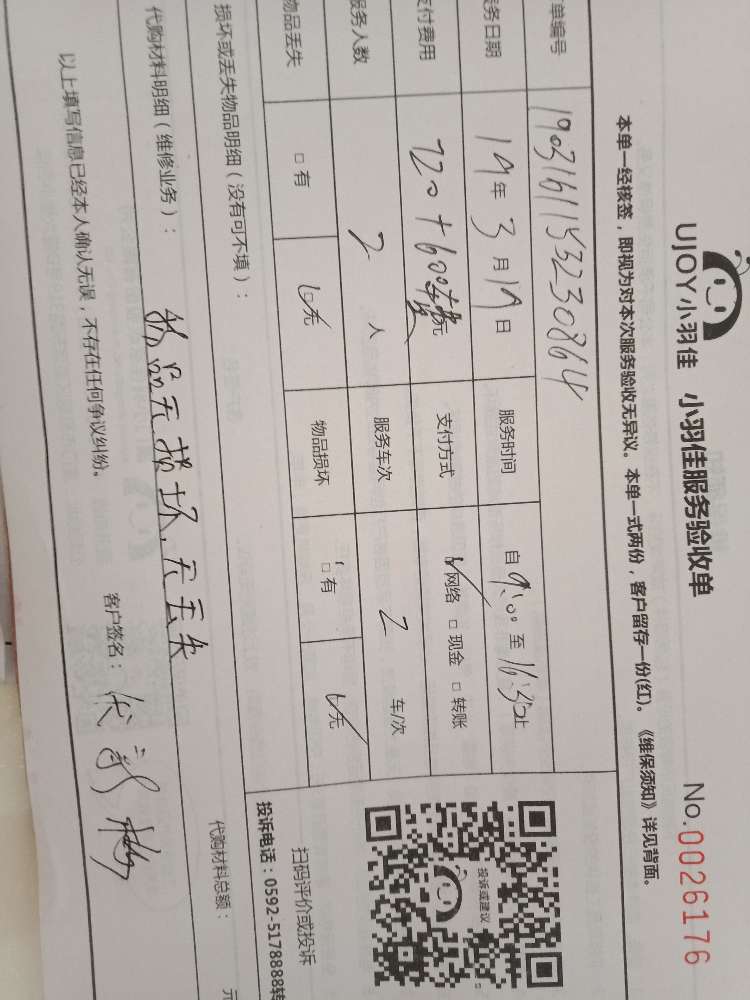 UJOY小羽佳 小羽佳服务验收单 No.0026176
本单一经核签，即视为对本次服务验收无异议。本单一式两份，客户留存一份(红)。《维保须知》详见背面。
单编号 190316115323230864
务日期 19年3月19日 服务时间 自9:00至16:30止
支付费用 720+600 元 支付方式 网络 □现金 □转账
服务人数 2人 服务车次 2 车/次
物品丢失 □有 □无 物品损坏 □有 □无
投诉或建议
扫码评价或投诉
投诉电话：0592-5178888转
损坏或丢失物品明细（没有可不填）：
代购材料明细（维修业务）： 代购材料总额： 元
物品无损坏，无丢失
以上填写信息已经本人确认无误，不存在任何争议纠纷。 客户签名：